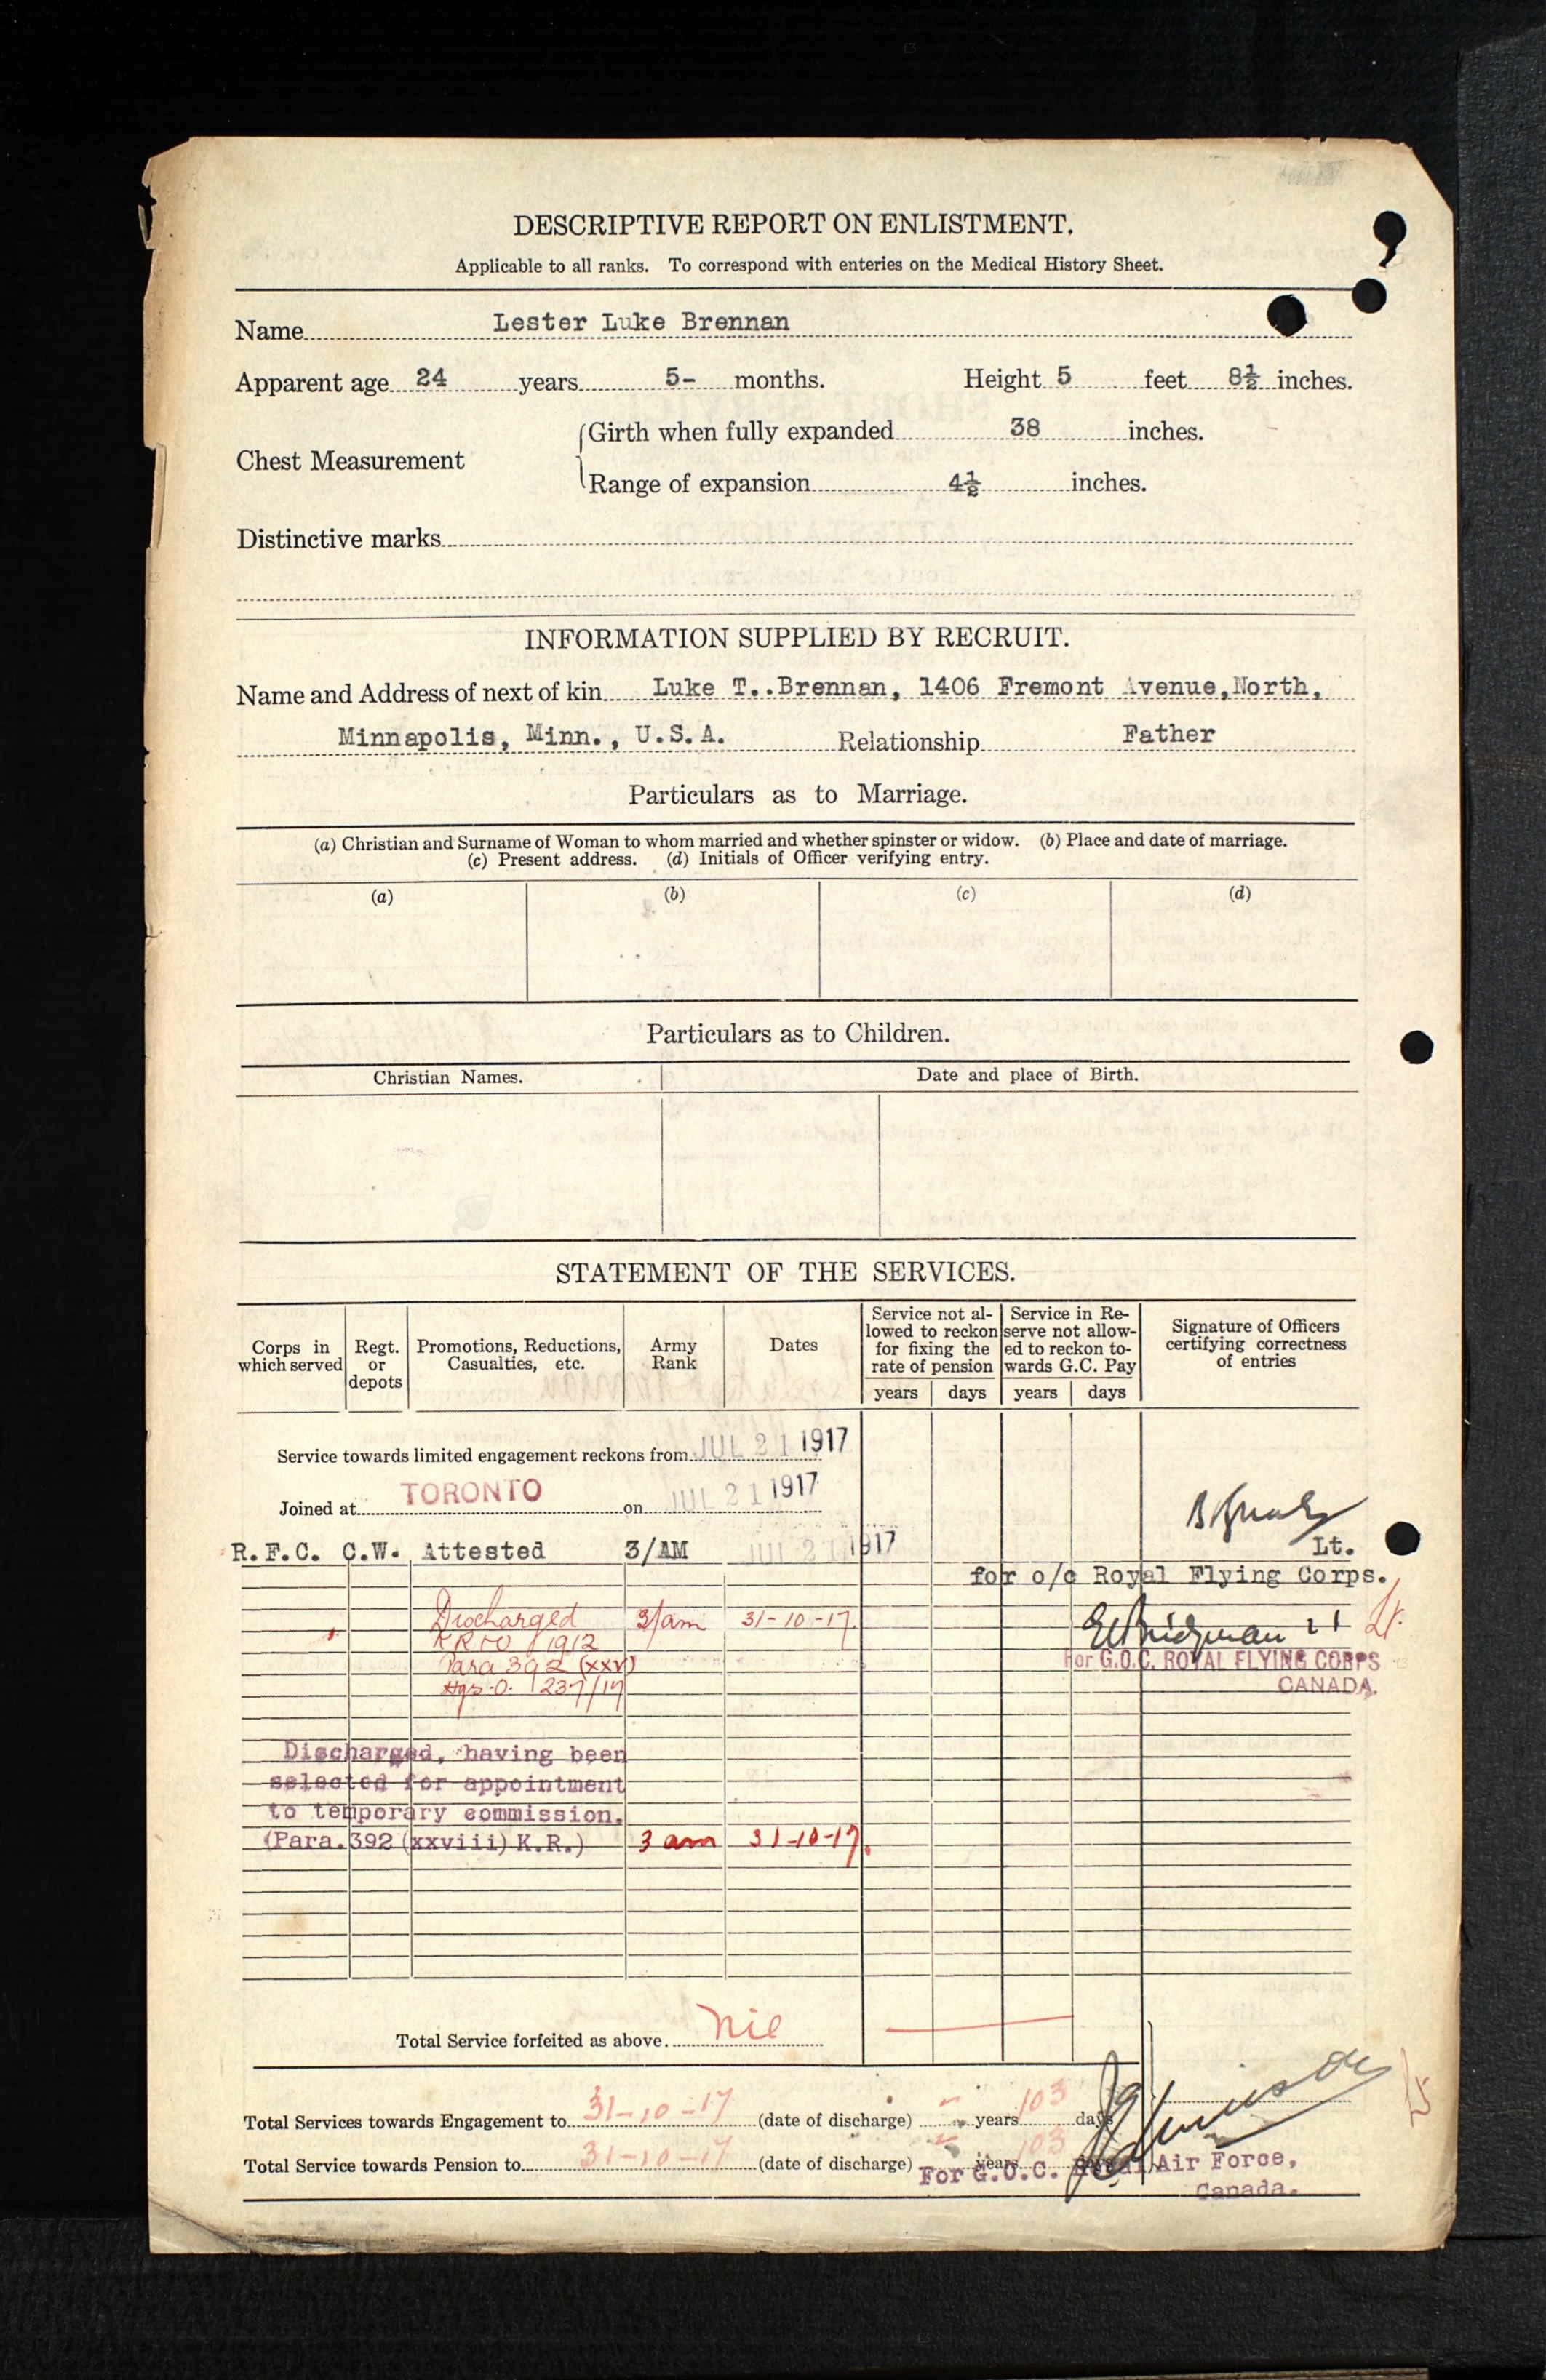 DESCRIPTIVE REPORT ON ENLISTMENT.
Applicable to all ranks. To correspond with enteries on the Medical History Sheet.
Name Lester Luke Brennan
Apparent age 24 years 5- months. Height 5 feet 8½ inches.
Girth when fully expanded 38 inches.
Chest Measurement
Range of expansion 4½ inches.
Distinctive marks
INFORMATION SUPPLIED BY RECRUIT.
Name and Address of next of kin Luke T..Brennan, 1406 Fremont Avenue, North,
Minnapolis, Minn., U.S.A. Relationship Father
Particulars as to Marriage.
(a) Christian and Surname of Woman to whom married and whether spinster or widow. (b) Place and date of marriage.
(c) Present address. (d) Initials of Officer verifying entry.
(a) (b) (c) (d)
Particulars as to Children.
Christian Names. Date and place of Birth.
STATEMENT OF THE SERVICES.
Corps in which served
Regt. or depots
Promotions, Reductions, Casualties, etc.
Army Rank
Dates
Service not allowed to reckon for fixing the rate of pension
years days
Service in Reserve not allowed to reckon towards G.C. Pay
years days
Signature of Officers certifying correctness of entries
Service towards limited engagement reckons from JUL 21 1917
Joined at TORONTO on JUL 21 1917
R.F.C. C.W. Attested 3/AM JUL 21 1917 Lt.
for o/c Royal Flying Corps.
Discharged 3/am 31-10-17 Lt.
1912
Para 392 (xxv) For G.O.C. ROYAL FLYING CORPS
237/17 CANADA.
Discharged, having been
selected for appointment
to temporary commission.
(Para.392(xxviii)K.R.) 3 am 31-10-17.
Total Service forfeited as above. Nil
Total Services towards Engagement to 31-10-17 (date of discharge) years 103 days
Total Service towards Pension to 31-10-17 (date of discharge) years 103
For G.O.C. Royal Air Force,
Canada.